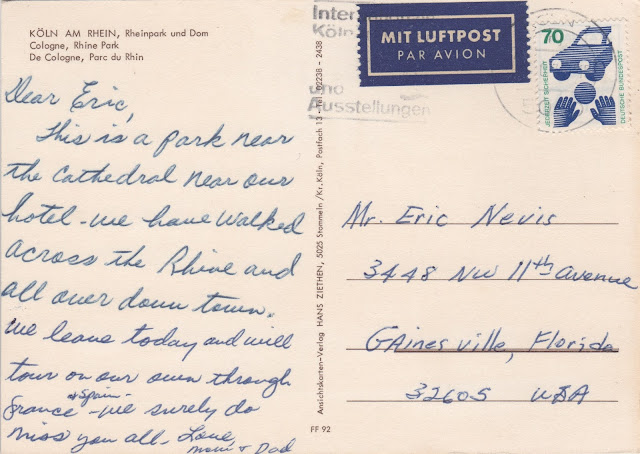 KÖLN AM RHEIN, Rheinpark und Dom
Cologne, Rhine Park
De Cologne, Parc du Rhin
Dear Eric,
This is a park near
the Cathedral near our
hotel - we have walked
across the Rhine and
all over down town.
We leave today and will
tour on our own through
France + Spain - we surely do
miss you all - Love,
Mom + Dad
Ansichtskarten-Verlag HANS ZIETHEN, 5025 Stommeln/Kr. Köln, Postfach 13 - Tel. 02238 - 2438
FF 92
Inter
Köln
und
Ausstellungen
MIT LUFTPOST
PAR AVION
70
JEDERZEIT SICHERHEIT
DEUTSCHE BUNDESPOST
Mr. Eric Nevis
3448 NW 11th Avenue
Gainesville, Florida
32605 USA